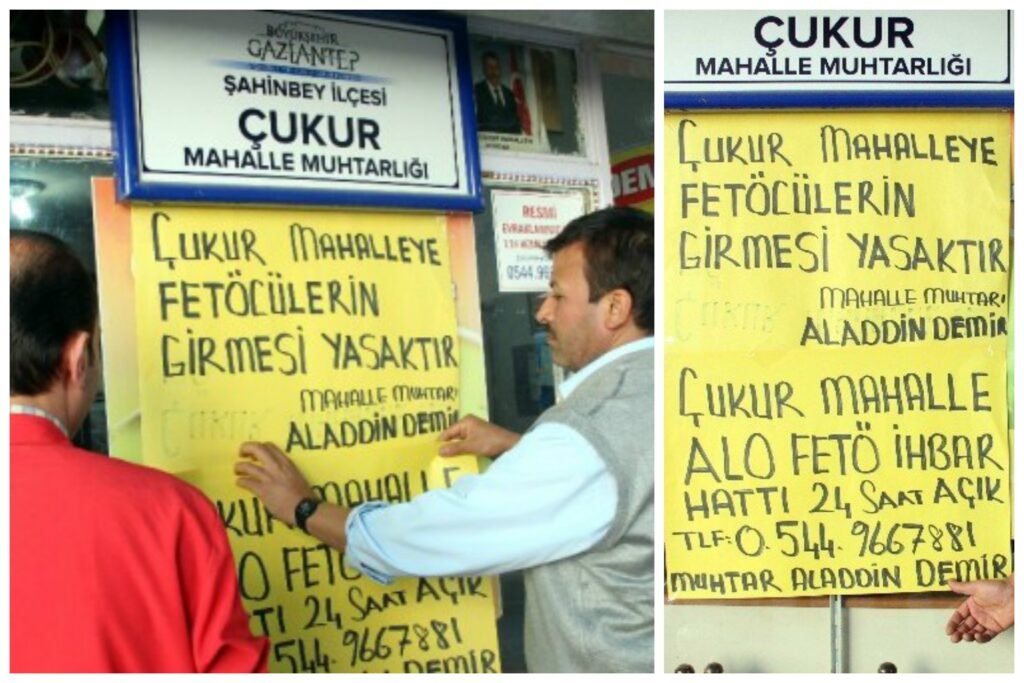 BÜYÜKŞEHİR
GAZİANTEP
ŞAHİNBEY İLÇESİ
ÇUKUR
MAHALLE MUHTARLIĞI
RESMİ
0544.96
DEM
ÇUKUR MAHALLEYE
FETÖCÜLERİN
GİRMESİ YASAKTIR
MAHALLE MUHTARI
ALADDİN DEMİR
ÇUKUR MAHALLE
ALO FETÖ
HATTI 24 SAAT AÇIK
544.9667881
DEMİR
ÇUKUR
MAHALLE MUHTARLIĞI
ÇUKUR MAHALLEYE
FETÖCÜLERİN
GİRMESİ YASAKTIR
MAHALLE MUHTARI
ALADDİN DEMİR
ÇUKUR MAHALLE
ALO FETÖ İHBAR
HATTI 24 SAAT AÇIK
TLF:0.544.9667881
MUHTAR ALADDİN DEMİR